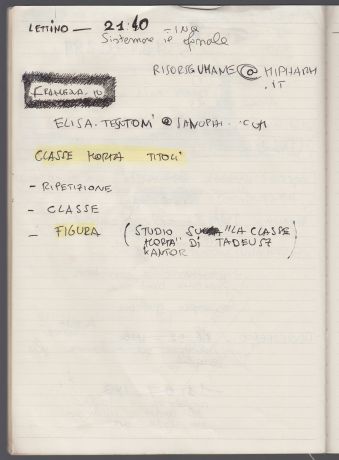 LETTINO — 21:40
Sistemare il finale
RISORSEUMANE@HIPHARM
.IT
ELISA.TESTONI@SANOFI.COM
CLASSE MORTA TITOLI
- RIPETIZIONE
- CLASSE
- FIGURA (STUDIO SULLA "LA CLASSE
MORTA" DI TADEUSZ
KANTOR